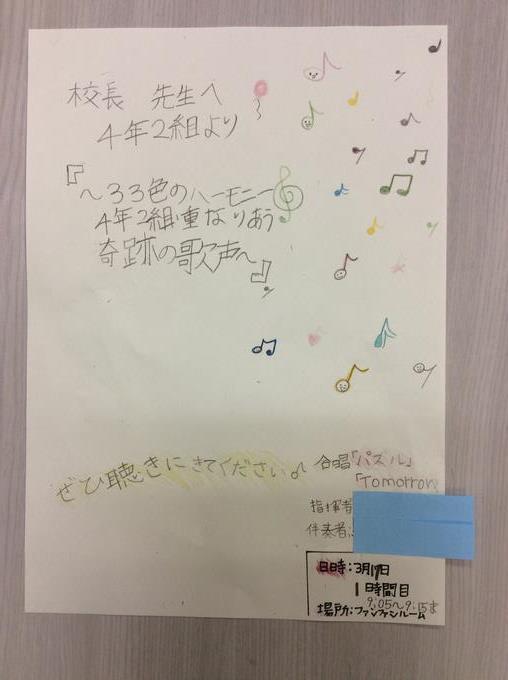 校長 先生へ
4年2組より
『
～33色のハーモニー
4年2組重なりあう
奇跡の歌声～
』
ぜひ聴きにきてください。
合唱「パズル」
「Tomorrow
指揮者
伴奏者:
日時:3月17日
1時間目
9:05～9:15まで
場所:ファンファンルーム